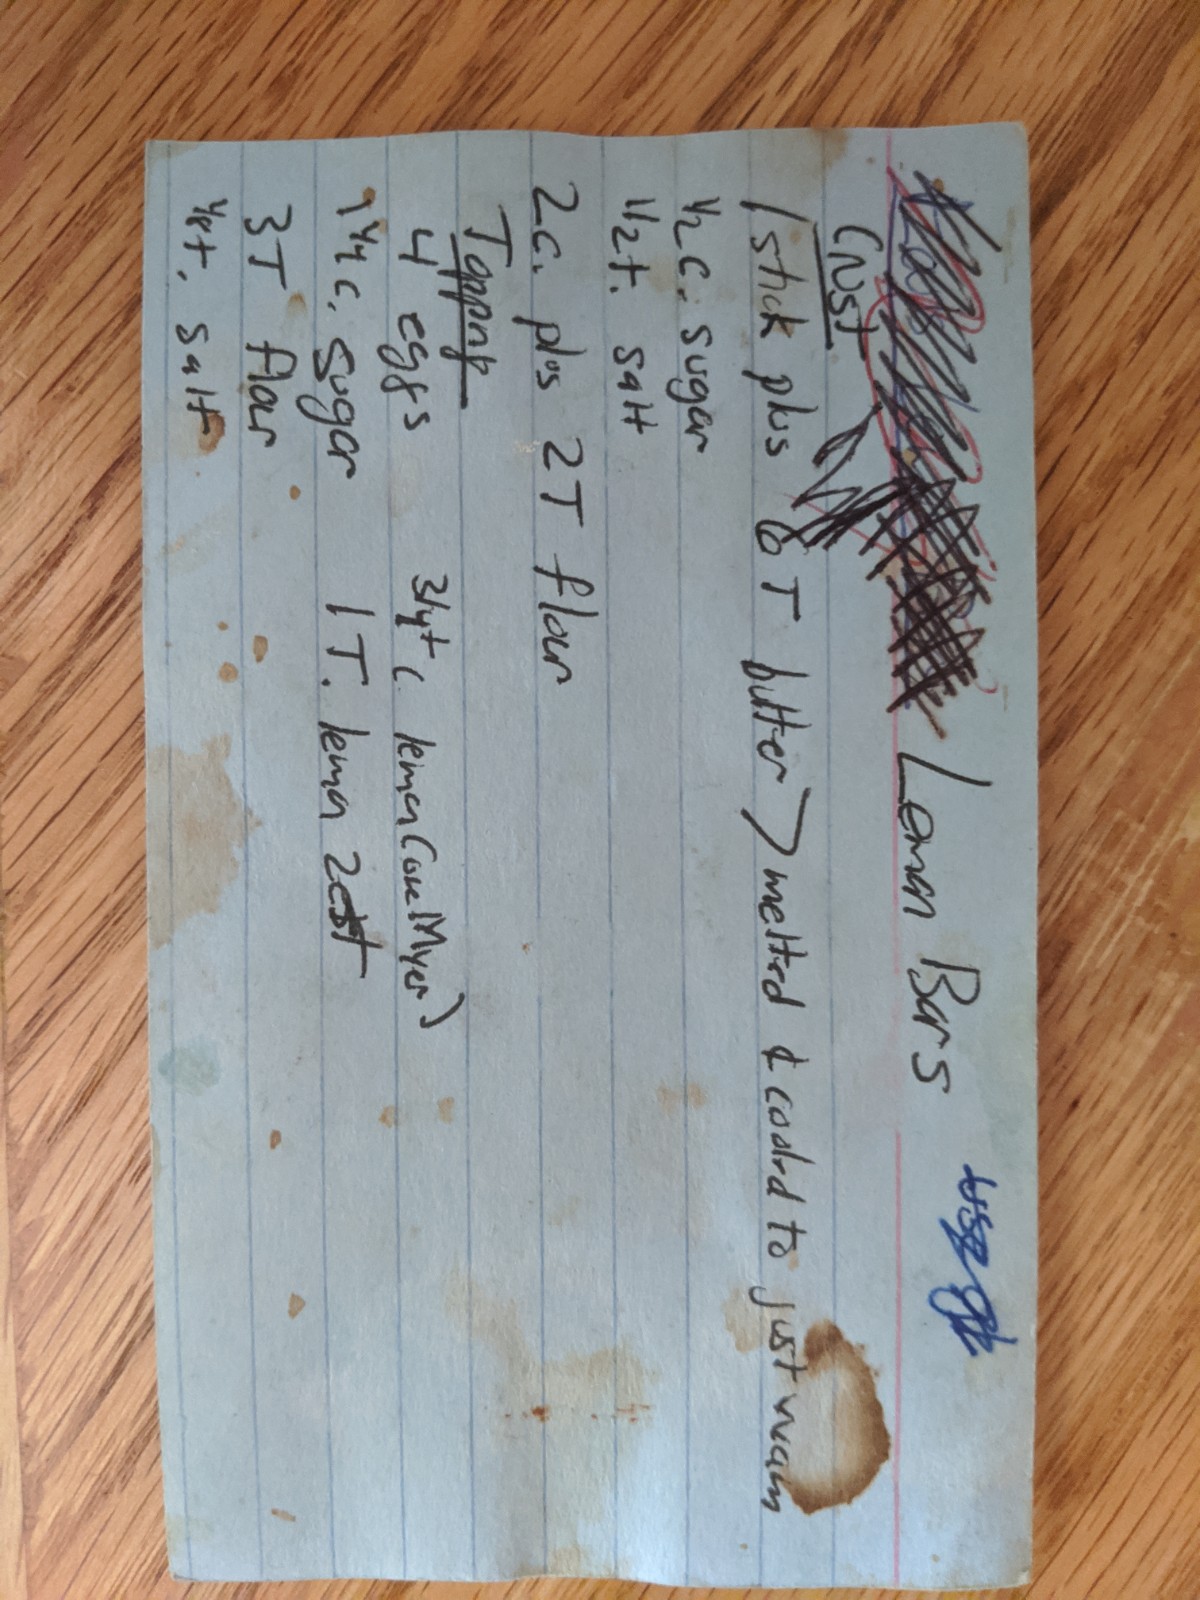 Lemon Bars
Crust
1 stick plus 6 T butter > melted & coold to just warm
1/2 c. sugar
1/2 t. salt
2 c. plus 2T flour
Topping
4 eggs 3/4+ c. lemon (one Myer)
1 1/4 c. sugar 1 T. lemon zest
3T flour
1/8 t. salt